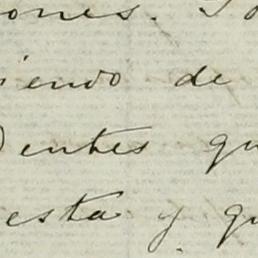 ones. To
iendo de
entes qu
esta y qu